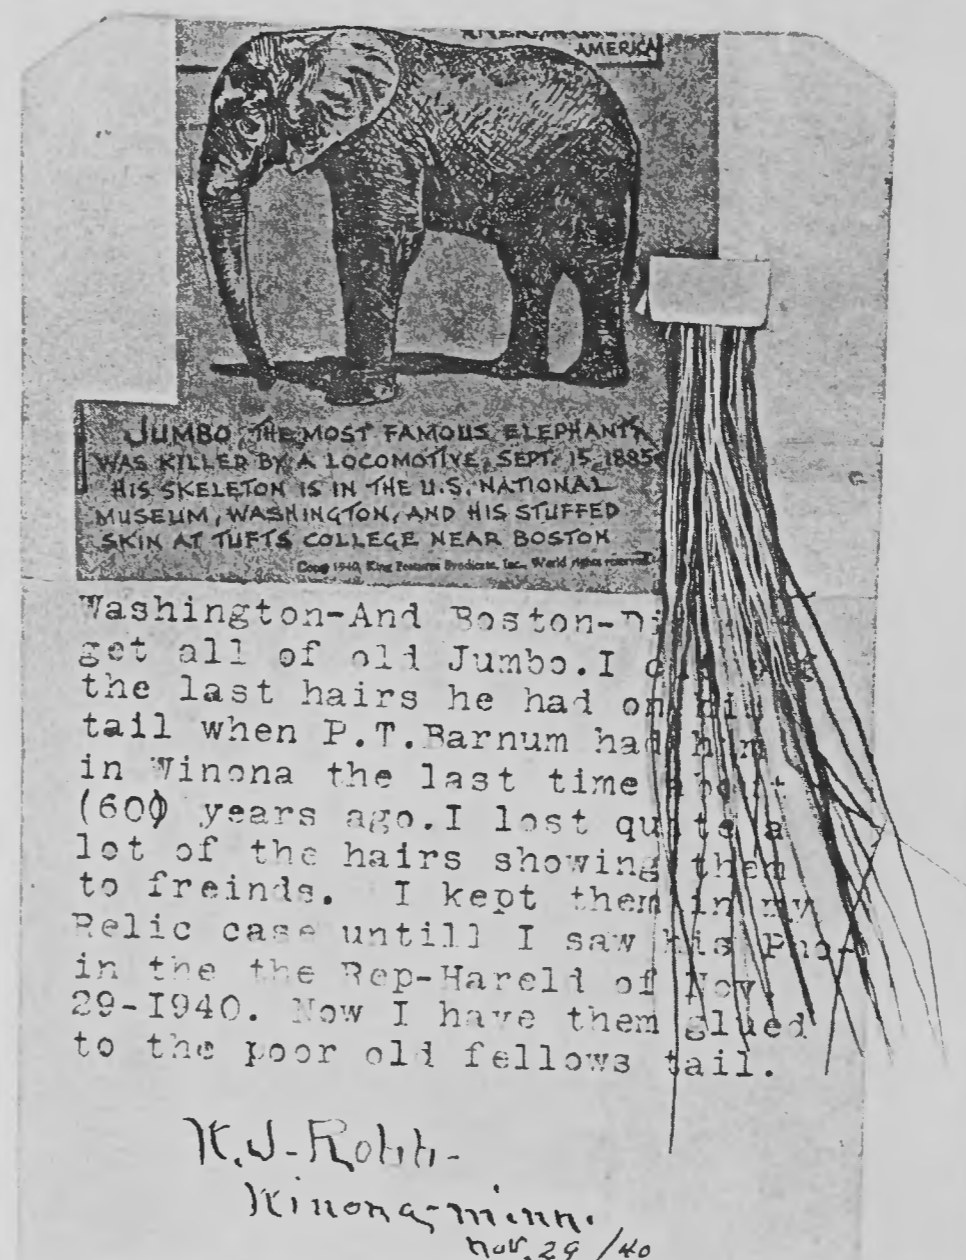 AMERICA
JUMBO, THE MOST FAMOUS ELEPHANT,
WAS KILLED BY A LOCOMOTIVE, SEPT. 15, 1885
HIS SKELETON IS IN THE U.S. NATIONAL
MUSEUM, WASHINGTON, AND HIS STUFFED
SKIN AT TUFTS COLLEGE NEAR BOSTON
Copr. 1940, King Features Syndicate, Inc., World rights reserved
Washington-And Boston-
get all of old Jumbo.I
the last hairs he had on his
tail when P.T.Barnum had him
in Winona the last time about
(60) years ago.I lost quite a
lot of the hairs showing them
to freinds. I kept them in my
Relic case untill I saw his Pho-
in the the Rep-Hareld of Nov.
29-1940. Now I have them glued
to the poor old fellows tail.
Winona, Minn.
Nov. 29/40